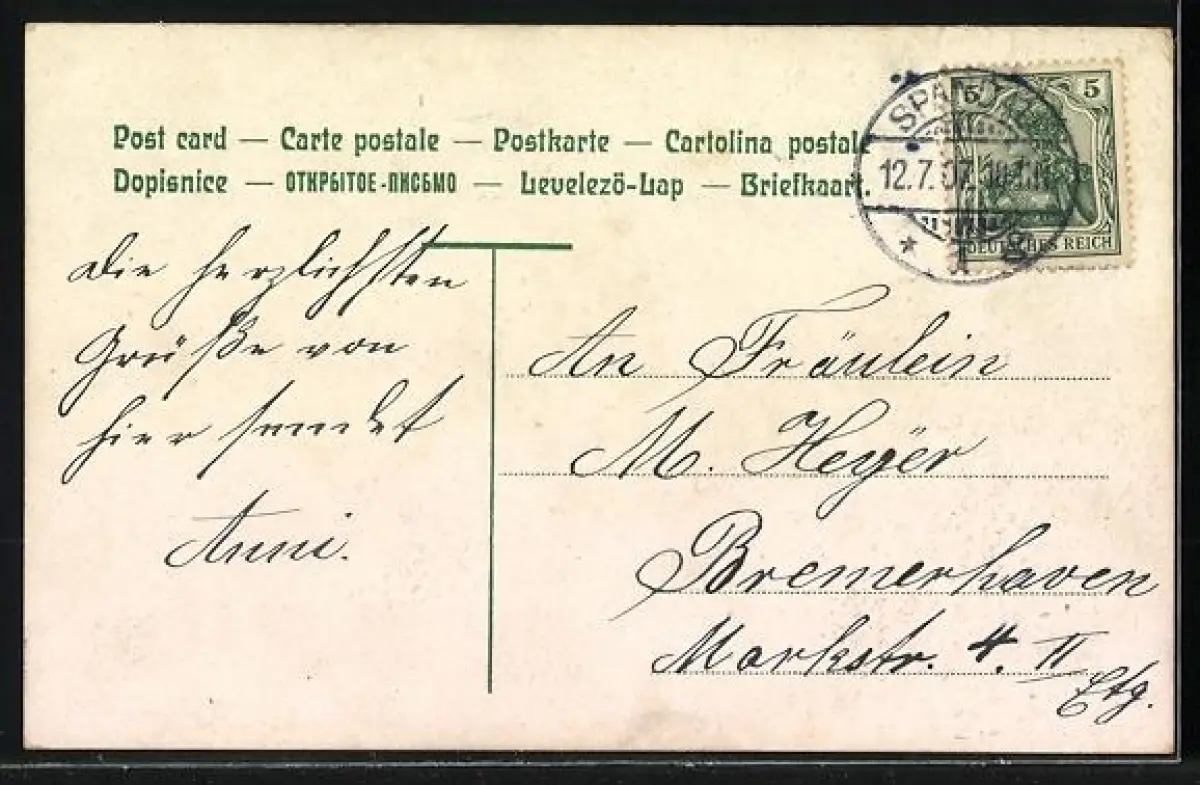 Post card — Carte postale — Postkarte — Cartolina postale
Dopisnice — ОТКРЫТОЕ-ПИСЬМО — Levelező-Lap — Briefkaart.
5 5
12.7.07.
DEUTSCHES REICH
Die herzlichsten
Grüße von
hier sendet
Anni.
An Fräulein
M. Heyer
Bremerhaven
Markstr. 4. II
Etg.